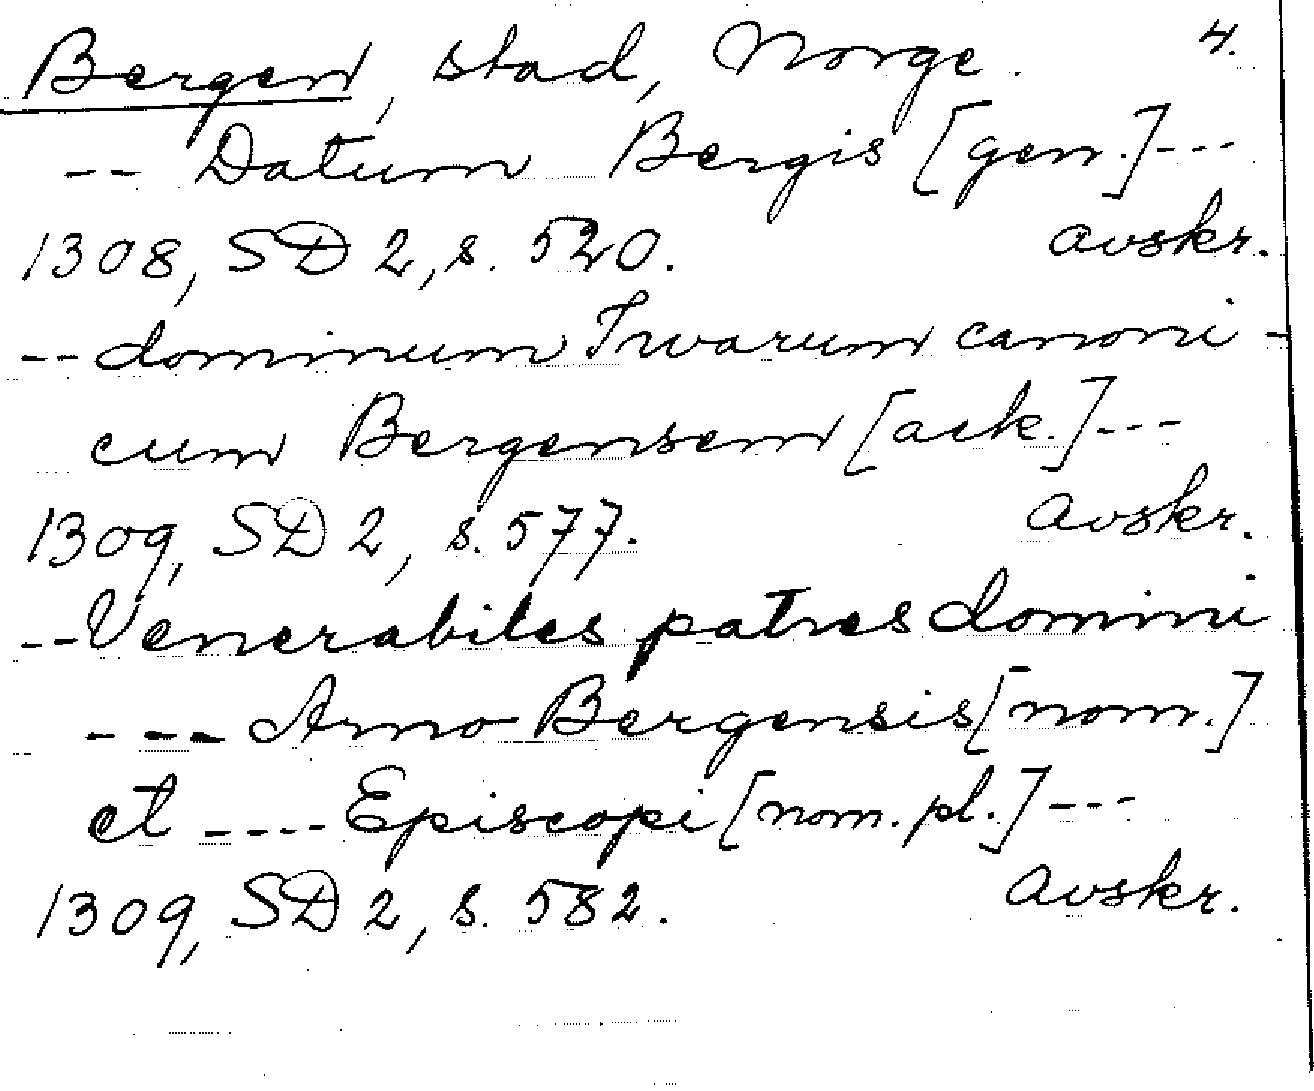 Bergen, stad, Norge. 4.
-- Datum Bergis [gen.]---
1308, SD 2, s. 520. avskr.
-- dominum Iwarum canoni-
cum Bergensem [ack.]---
1309, SD 2, s. 577. avskr.
-- Venerabiles patres domini
---- Arno Bergensis [nom.]
et ---- Episcopi [nom. pl.]---
1309, SD 2, s. 582. avskr.